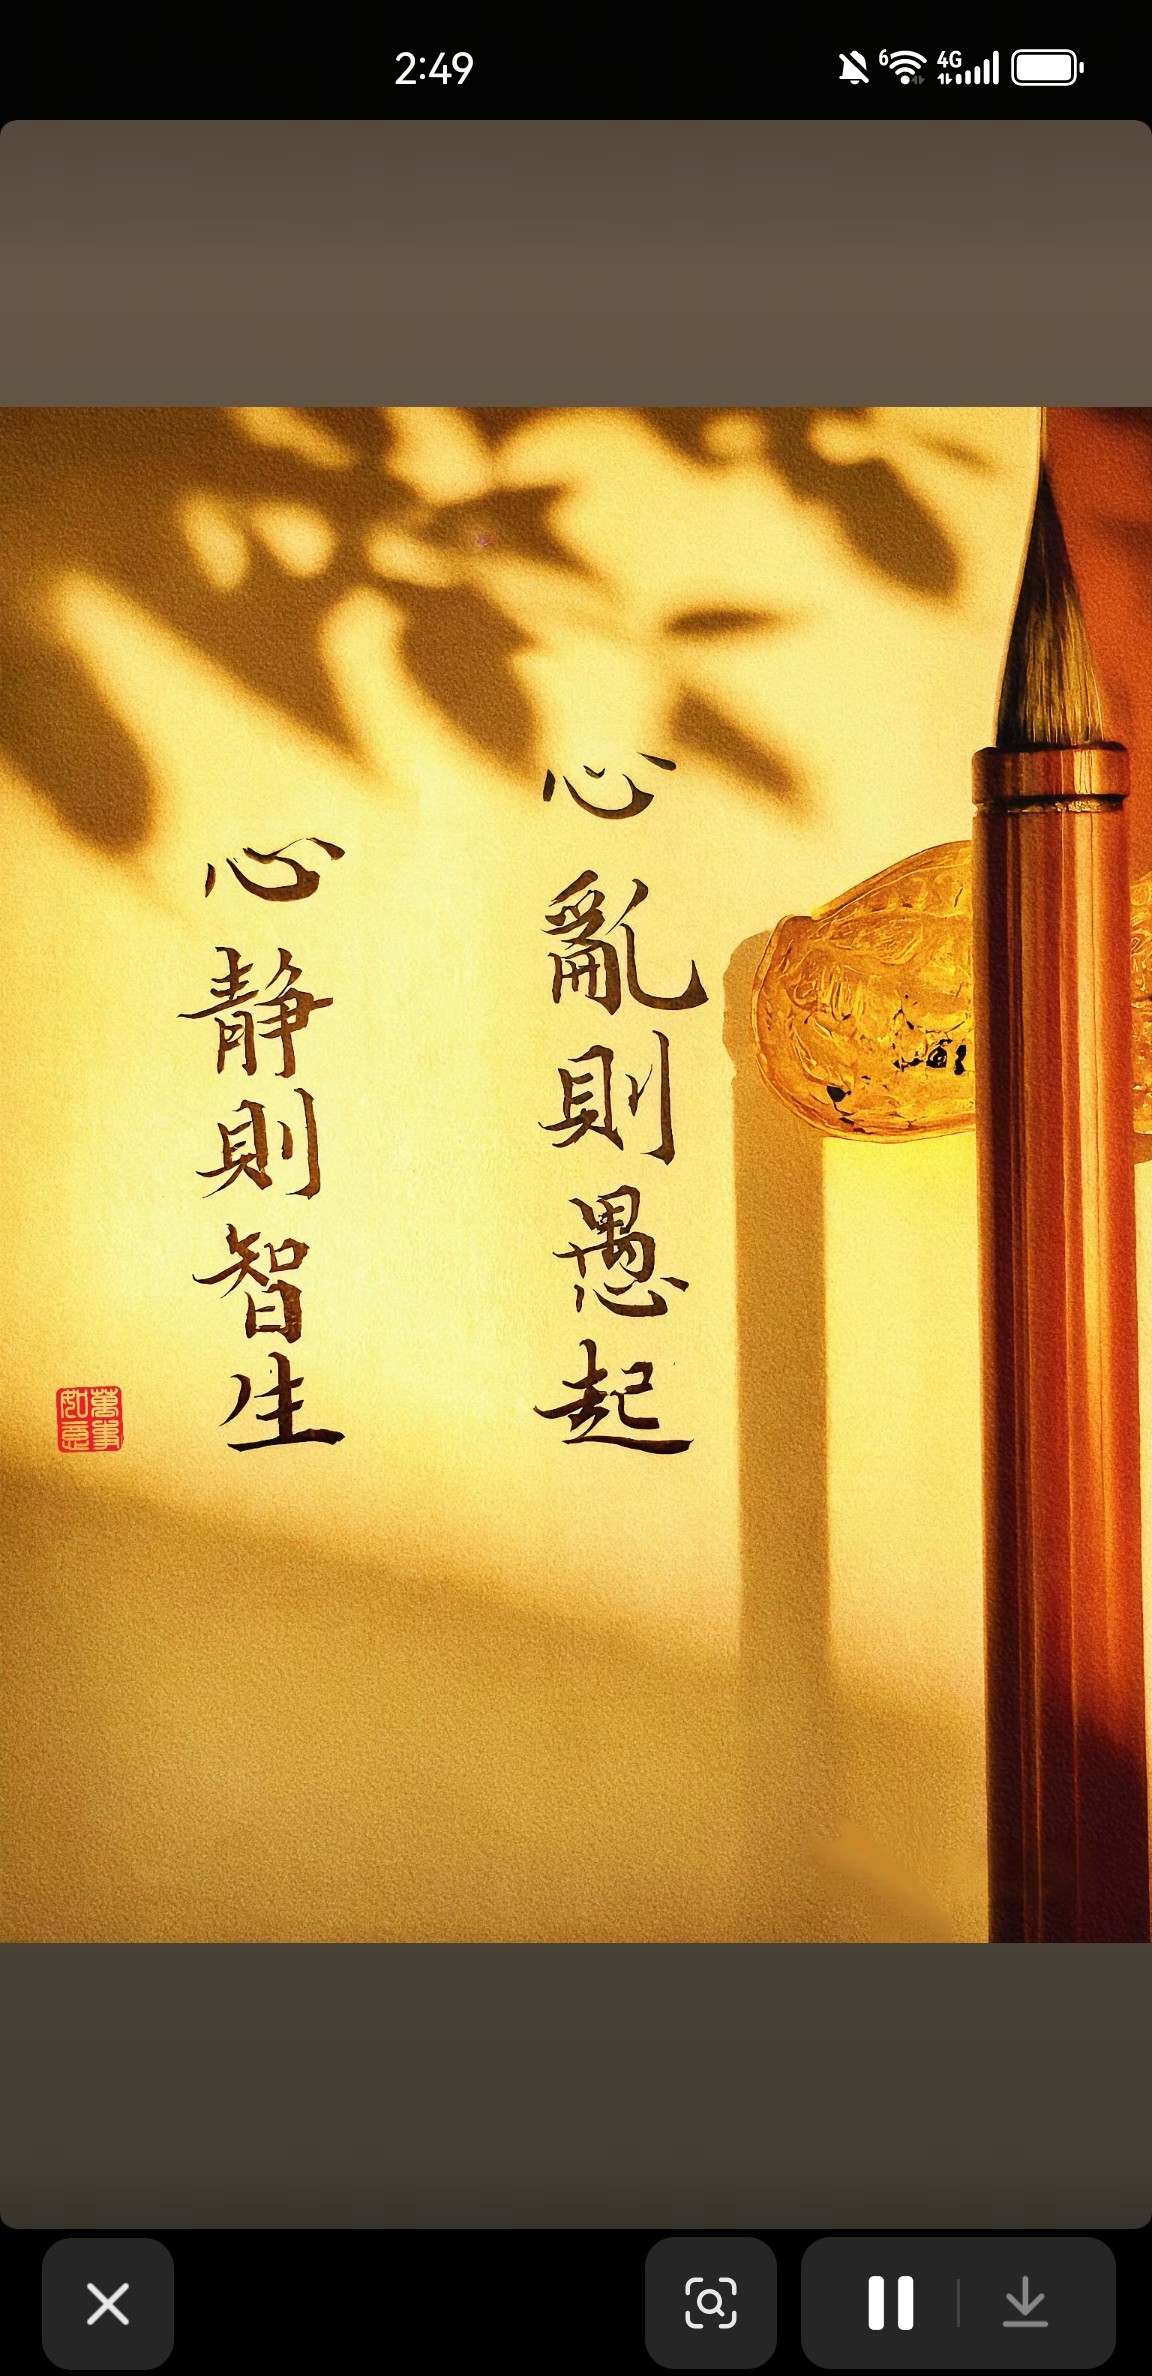 2:49
6
4G
心亂則愚起
心靜則智生
萬事如意